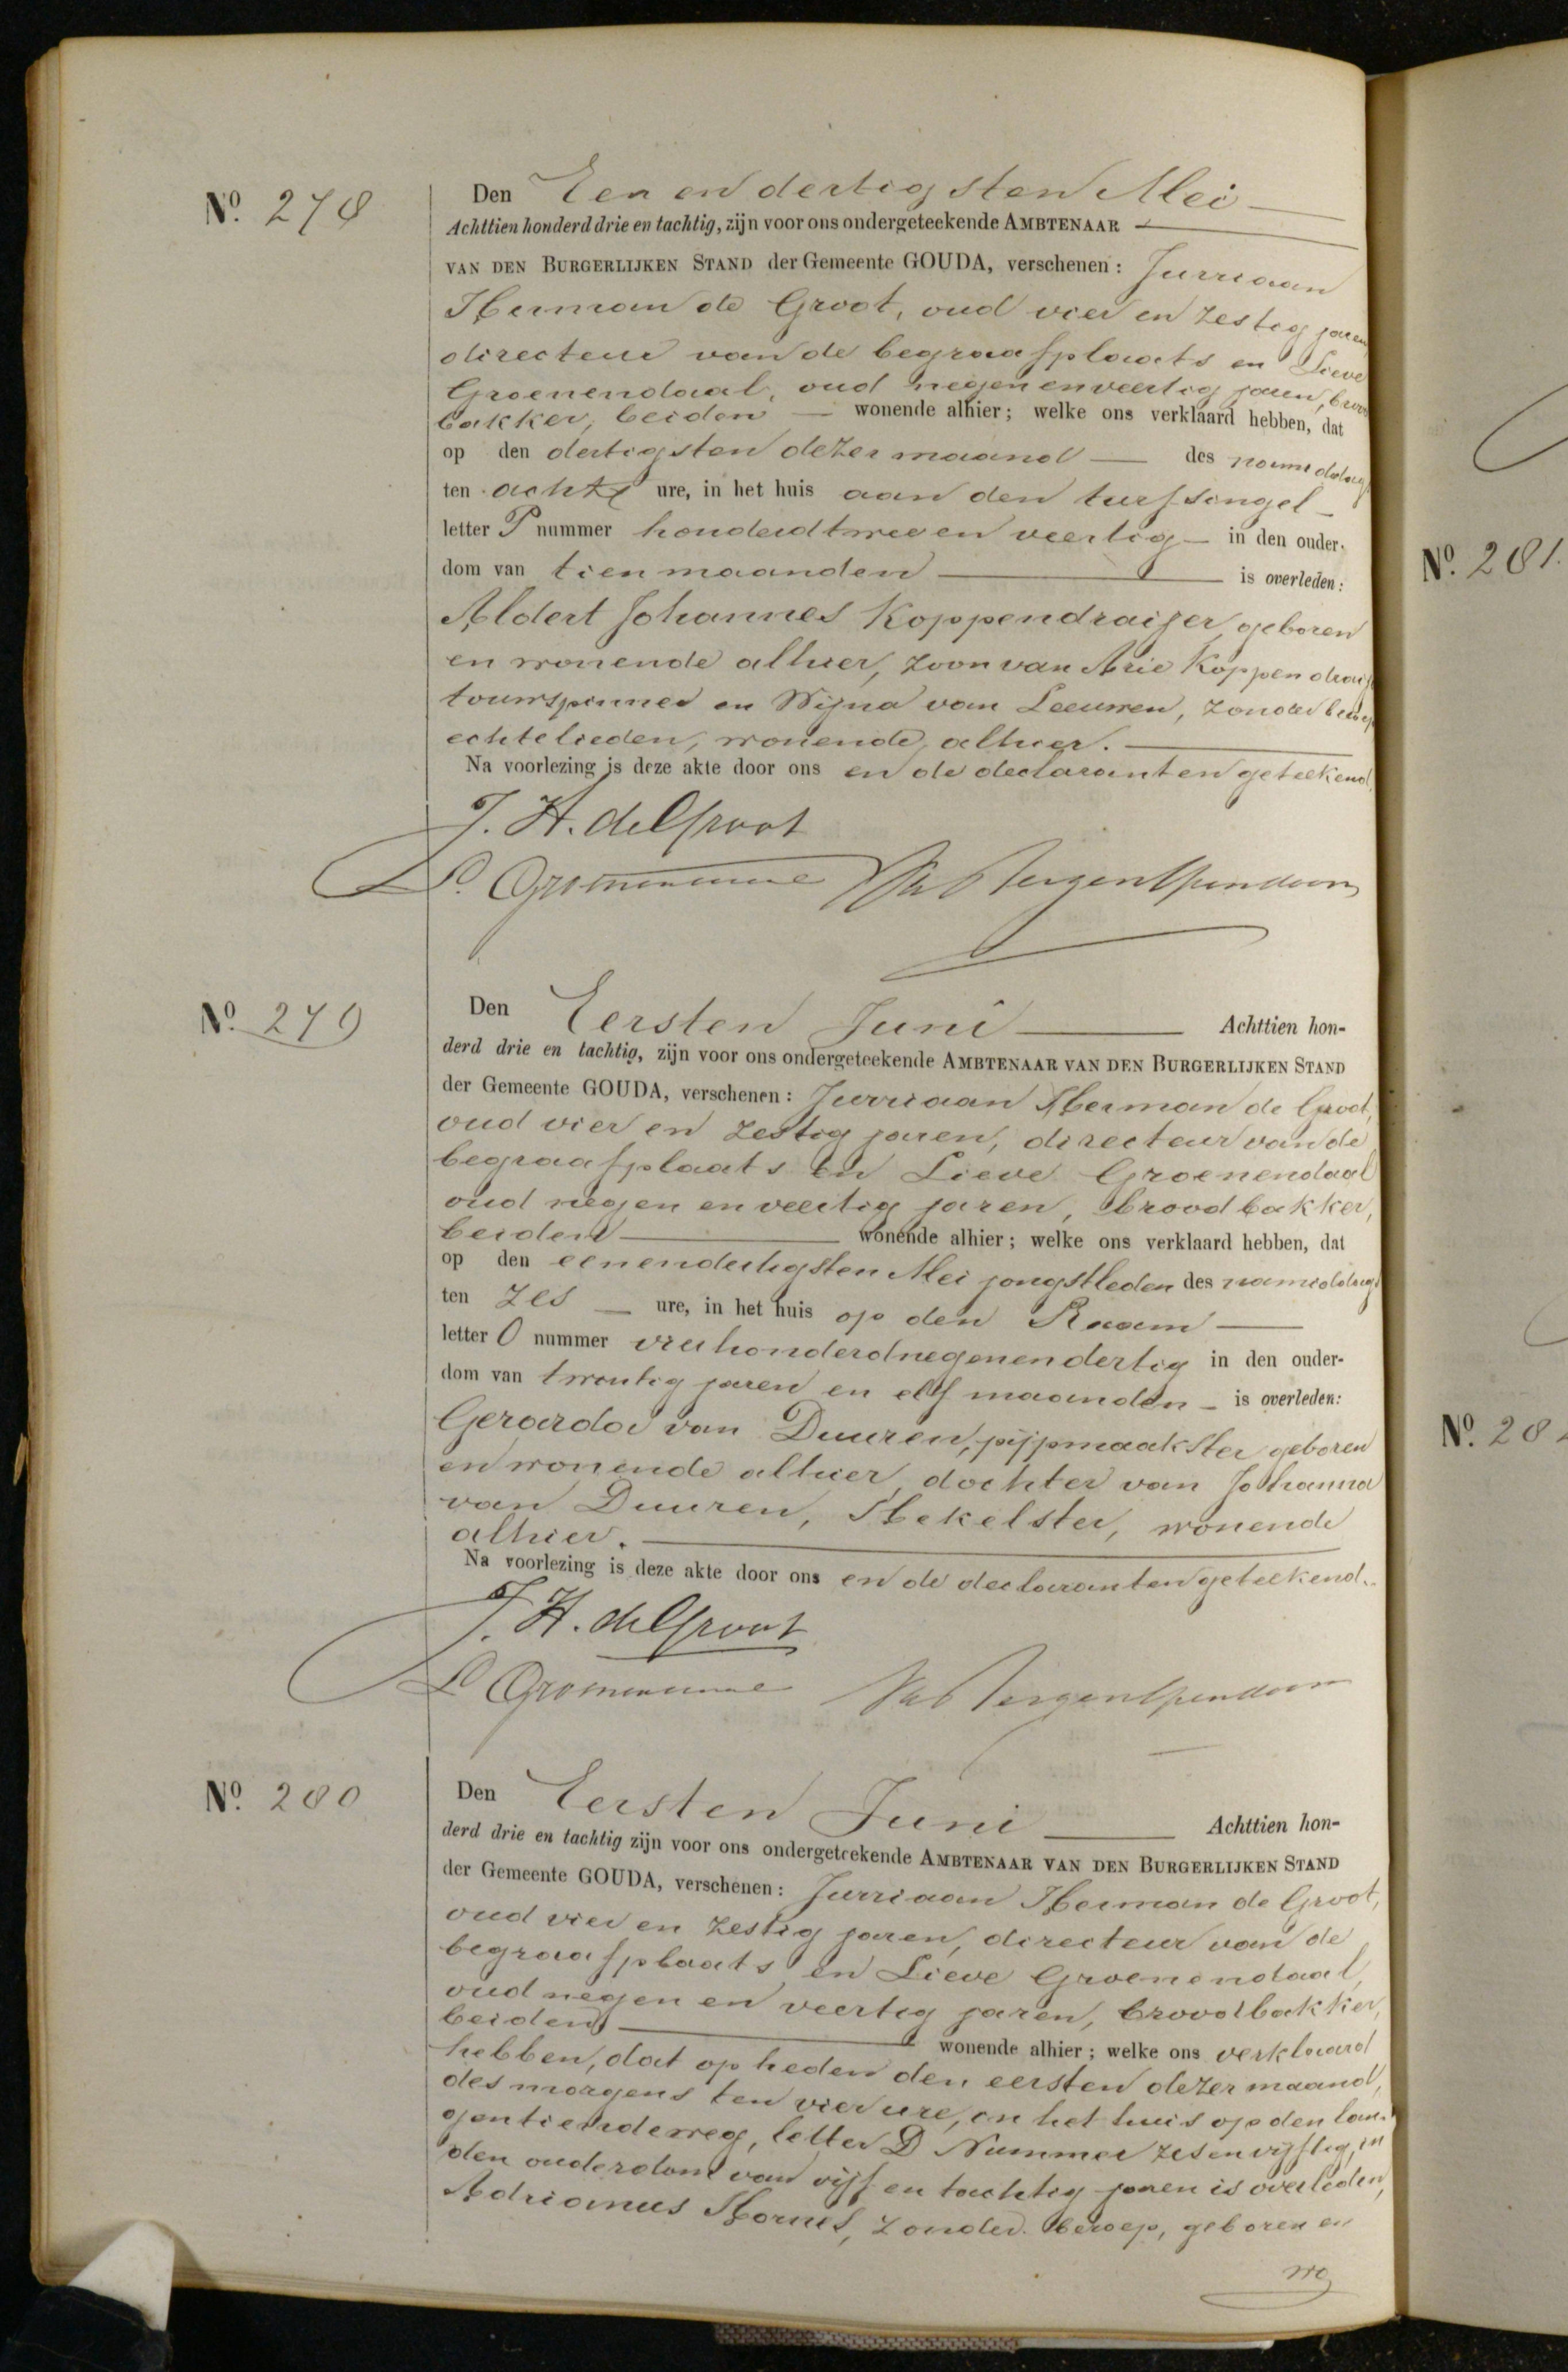 Nº. 278
Den Een en dertigsten Mei
Achttien honderd drie en tachtig, zijn voor ons ondergeteekende AMBTENAAR
VAN DEN BURGERLIJKEN STAND der Gemeente GOUDA, verschenen: Jurriaan
Herman de Groot, oud vier en zestig jaren
directeur van de begraafplaats en Lieve
Groenendaal, oud negen en veertig jaren, brood
bakker, beiden — wonende alhier; welke ons verklaard hebben, dat
op den dertigsten dezer maand — des namiddags
ten acht ure, in het huis aan den turfsingel
letter P nummer honderd twee en veertig — in den ouder-
dom van tien maanden — is overleden:
Aldert Johannes Koppendraijer, geboren
en wonende alhier, zoon van Arie Koppendraij
touwspinner en Wijna van Leeuwen, zonder beroep
echtelieden, wonende, alhier.
Na voorlezing is deze akte door ons en de declaranten geteekend
J. H. de Groot
Nº. 279
Den Eersten Juni — Achttien hon-
derd drie en tachtig, zijn voor ons ondergeteekende AMBTENAAR VAN DEN BURGERLIJKEN STAND
der Gemeente GOUDA, verschenen: Jurriaan Herman de Groot,
oud vier en zestig jaren, directeur van de
begraafplaats en Lieve Groenendaal
oud negen en veertig jaren, broodbakker,
beiden — wonende alhier; welke ons verklaard hebben, dat
op den eenendertigsten Mei jongstleden des namiddags
ten zes — ure, in het huis op den Raam
letter O nummer vierhonderdnegenendertig in den ouder-
dom van twintig jaren en elf maanden — is overleden:
Gerarda van Duuren, pijpmaakster geboren
en wonende alhier, dochter van Johanna
van Duuren, Hekelster, wonende
alhier.
Na voorlezing is deze akte door ons en de declaranten geteekend.
J. H. de Groot
Nº. 280
Den Eersten Juni — Achttien hon-
derd drie en tachtig zijn voor ons ondergeteekende AMBTENAAR VAN DEN BURGERLIJKEN STAND
der Gemeente GOUDA, verschenen: Jurriaan Herman de Groot,
oud vier en zestig jaren, directeur van de
begraafplaats en Lieve Groenendaal,
oud negen en veertig jaren, broodbakker,
beiden — wonende alhier; welke ons verklaard
hebben, dat op heden den eersten dezer maand,
des morgens ten vier ure, in het huis op den lan-
gentiendeweg, letter D Nummer zesenvijftig, in
den ouderdom van vijf en tachtig jaren is overleden,
Adrianus Hornes, zonder beroep, geboren en
wo
Nº. 281.
Nº. 28